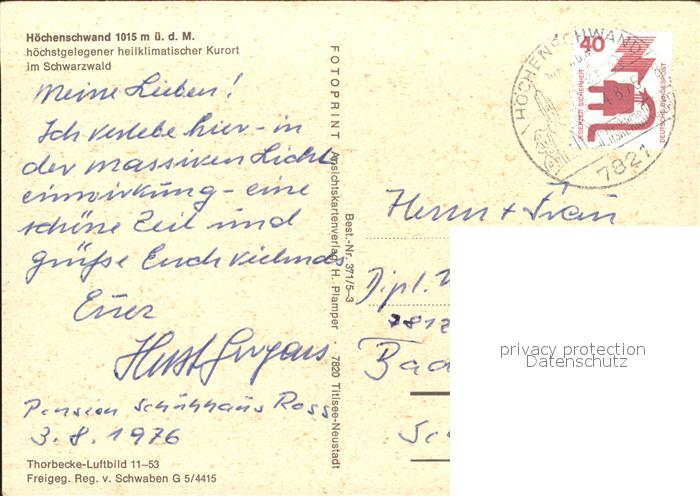 Höchenschwand 1015 m ü. d. M.
höchstgelegener heilklimatischer Kurort
im Schwarzwald
Meine Lieben!
Ich verlebe hier - in
der massiven Licht
einwirkung - eine
schöne Zeit und
grüße Euch vielmals
Euer
Horst
Pension Schühhaus Ross
3.8.1976
Thorbecke-Luftbild 11–53
Freigeg. Reg. v. Schwaben G 5/4415
FOTOPRINT Ansichtskartenverlag H. Plamper · 7820 Titisee-Neustadt
Best.-Nr. 371/5–3
HÖCHENSCHWAND
7821
40
JEDERZEIT SICHERHEIT
DEUTSCHE BUNDESPOST
Herrn + Frau
Dipl.
7812
Bad
privacy protection
Datenschutz